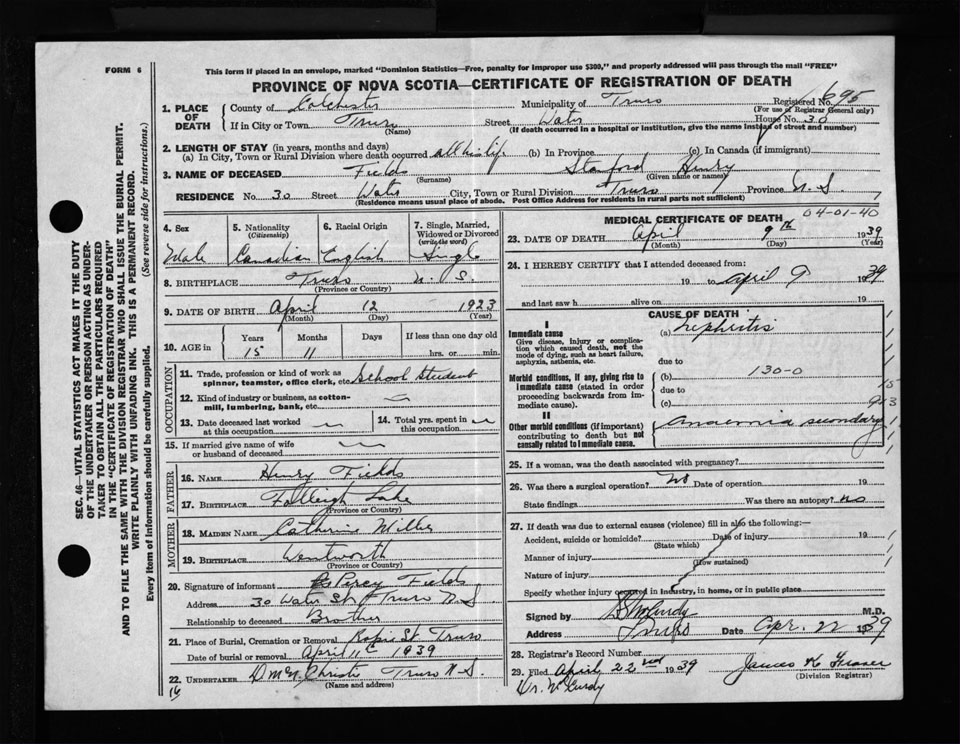 FORM 6
This form if placed in an envelope, marked "Dominion Statistics—Free, penalty for improper use $300," and properly addressed will pass through the mail "FREE"
PROVINCE OF NOVA SCOTIA—CERTIFICATE OF REGISTRATION OF DEATH
SEC. 46—VITAL STATISTICS ACT MAKES IT THE DUTY
OF THE UNDERTAKER OR PERSON ACTING AS UNDER-
TAKER TO OBTAIN ALL THE PARTICULARS REQUIRED
IN THE "CERTIFICATE OF REGISTRATION OF DEATH"
AND TO FILE THE SAME WITH THE DIVISION REGISTRAR WHO SHALL ISSUE THE BURIAL PERMIT.
WRITE PLAINLY WITH UNFADING INK. THIS IS A PERMANENT RECORD.
Every item of information should be carefully supplied. (See reverse side for instructions.)
1. PLACE OF DEATH
County of Colchester Municipality of Truro Registered No. 695
(For use of Registrar General only)
If in City or Town Truro Street Water House No. 30
(Name) (If death occurred in a hospital or institution, give the name instead of street and number)
2. LENGTH OF STAY (in years, months and days)
(a) In City, Town or Rural Division where death occurred all his life (b) In Province (c) In Canada (if immigrant)
3. NAME OF DECEASED Fields Stanford Henry
(Surname) (Given name or names)
RESIDENCE No. 30 Street Water City, Town or Rural Division Truro Province N.S
(Residence means usual place of abode. Post Office Address for residents in rural parts not sufficient)
4. Sex Male
5. Nationality (Citizenship) Canadian
6. Racial Origin English
7. Single, Married, Widowed or Divorced (write the word) Single
8. BIRTHPLACE Truro N.S.
(Province or Country)
9. DATE OF BIRTH April 12 1923
(Month) (Day) (Year)
10. AGE in Years Months Days If less than one day
15 11 hrs. or min.
OCCUPATION
11. Trade, profession or kind of work as spinner, teamster, office clerk, etc. School Student
12. Kind of industry or business, as cotton-mill, lumbering, bank, etc.
13. Date deceased last worked at this occupation
14. Total yrs. spent in this occupation
15. If married give name of wife or husband of deceased
FATHER
16. NAME Henry Fields
17. BIRTHPLACE Folleigh Lake
(Province or Country)
MOTHER
18. MAIDEN NAME Catherine
19. BIRTHPLACE Wentworth
(Province or Country)
20. Signature of informant Percy Fields
Address 30 Water St Truro N.S
Relationship to deceased Brother
21. Place of Burial, Cremation or Removal St Truro
Date of burial or removal April 11 1939
22. UNDERTAKER Christie Truro N.S.
(Name and address)
16
MEDICAL CERTIFICATE OF DEATH
04-01-40
23. DATE OF DEATH April 9th 1939
(Month) (Day) (Year)
24. I HEREBY CERTIFY that I attended deceased from:
19 to April 9 1939
and last saw h alive on 19
CAUSE OF DEATH
I
Immediate cause
Give disease, injury or complication which caused death, not the mode of dying, such as heart failure, asphyxia, asthenia, etc.
(a) Nephritis
due to
Morbid conditions, if any, giving rise to immediate cause (stated in order proceeding backwards from immediate cause).
(b) 130-0
due to
(c)
II
Other morbid conditions (if important) contributing to death but not causally related to immediate cause.
Anaemia secondary
25. If a woman, was the death associated with pregnancy?
26. Was there a surgical operation? No Date of operation 19
State findings Was there an autopsy? no
27. If death was due to external causes (violence) fill in also the following:—
Accident, suicide or homicide? Date of injury 19
(State which)
Manner of injury
(How sustained)
Nature of injury
Specify whether injury occurred in industry, in home, or in public place
Signed by McCurdy M.D.
Address Truro Date Apr. 22 1939
28. Registrar's Record Number
29. Filed April 22nd 1939 James K Fraser
(Division Registrar)
Dr. McCurdy